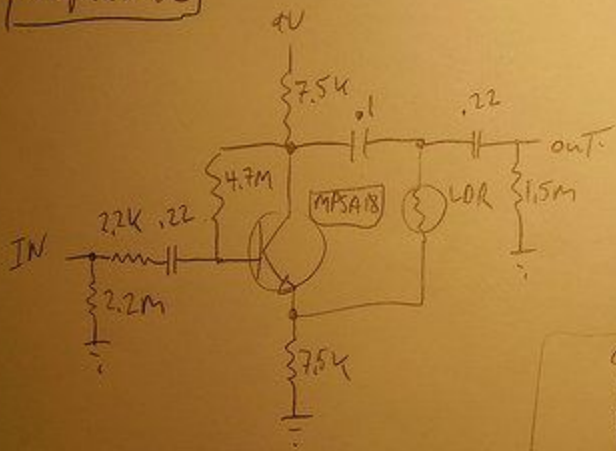 9V
7.5K
.1
.22
OUT
4.7M
MPSA18
LDR
1.5M
2.2K .22
IN
2.2M
7.5K